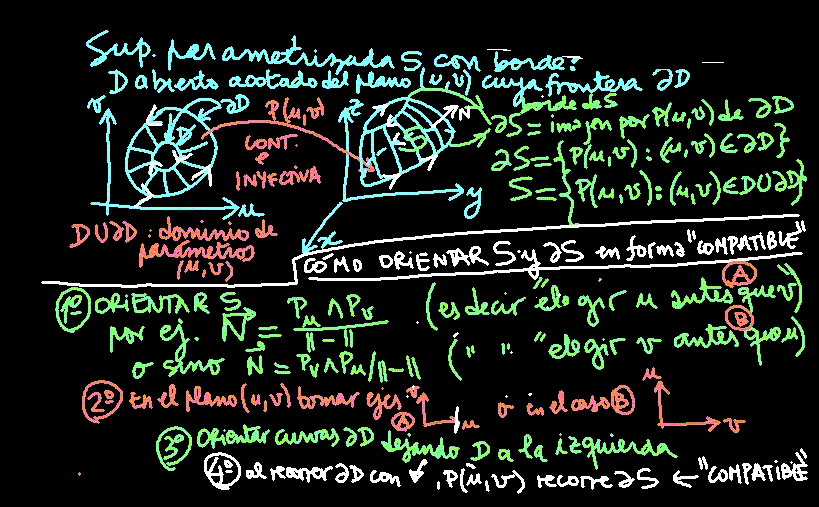 Sup. parametrizada S con borde?
D abierto acotado del plano (u,v) cuya frontera ∂D
v
∂D
D
u
P(u,v)
CONT.
e
INYECTIVA
z
N
S
y
x
borde de S
∂S = imagen por P(u,v) de ∂D
∂S = {P(u,v) : (u,v) ∈ ∂D}
S = {P(u,v) : (u,v) ∈ D∪∂D}
D∪∂D : dominio de
parámetros
(u,v)
CÓMO ORIENTAR S y ∂S en forma "COMPATIBLE"
1º ORIENTAR S
por ej. N = Pu ∧ Pv / ||-||
(es decir "elegir u antes que v) A
o sino N = Pv ∧ Pu / ||-||
(" " "elegir v antes que u) B
2º En el plano (u,v) tomar ejes v u A o in el caso B u v
3º Orientar curvas ∂D dejando D a la izquierda
4º al recorrer ∂D con , P(u,v) recorre ∂S ← "COMPATIBLE"